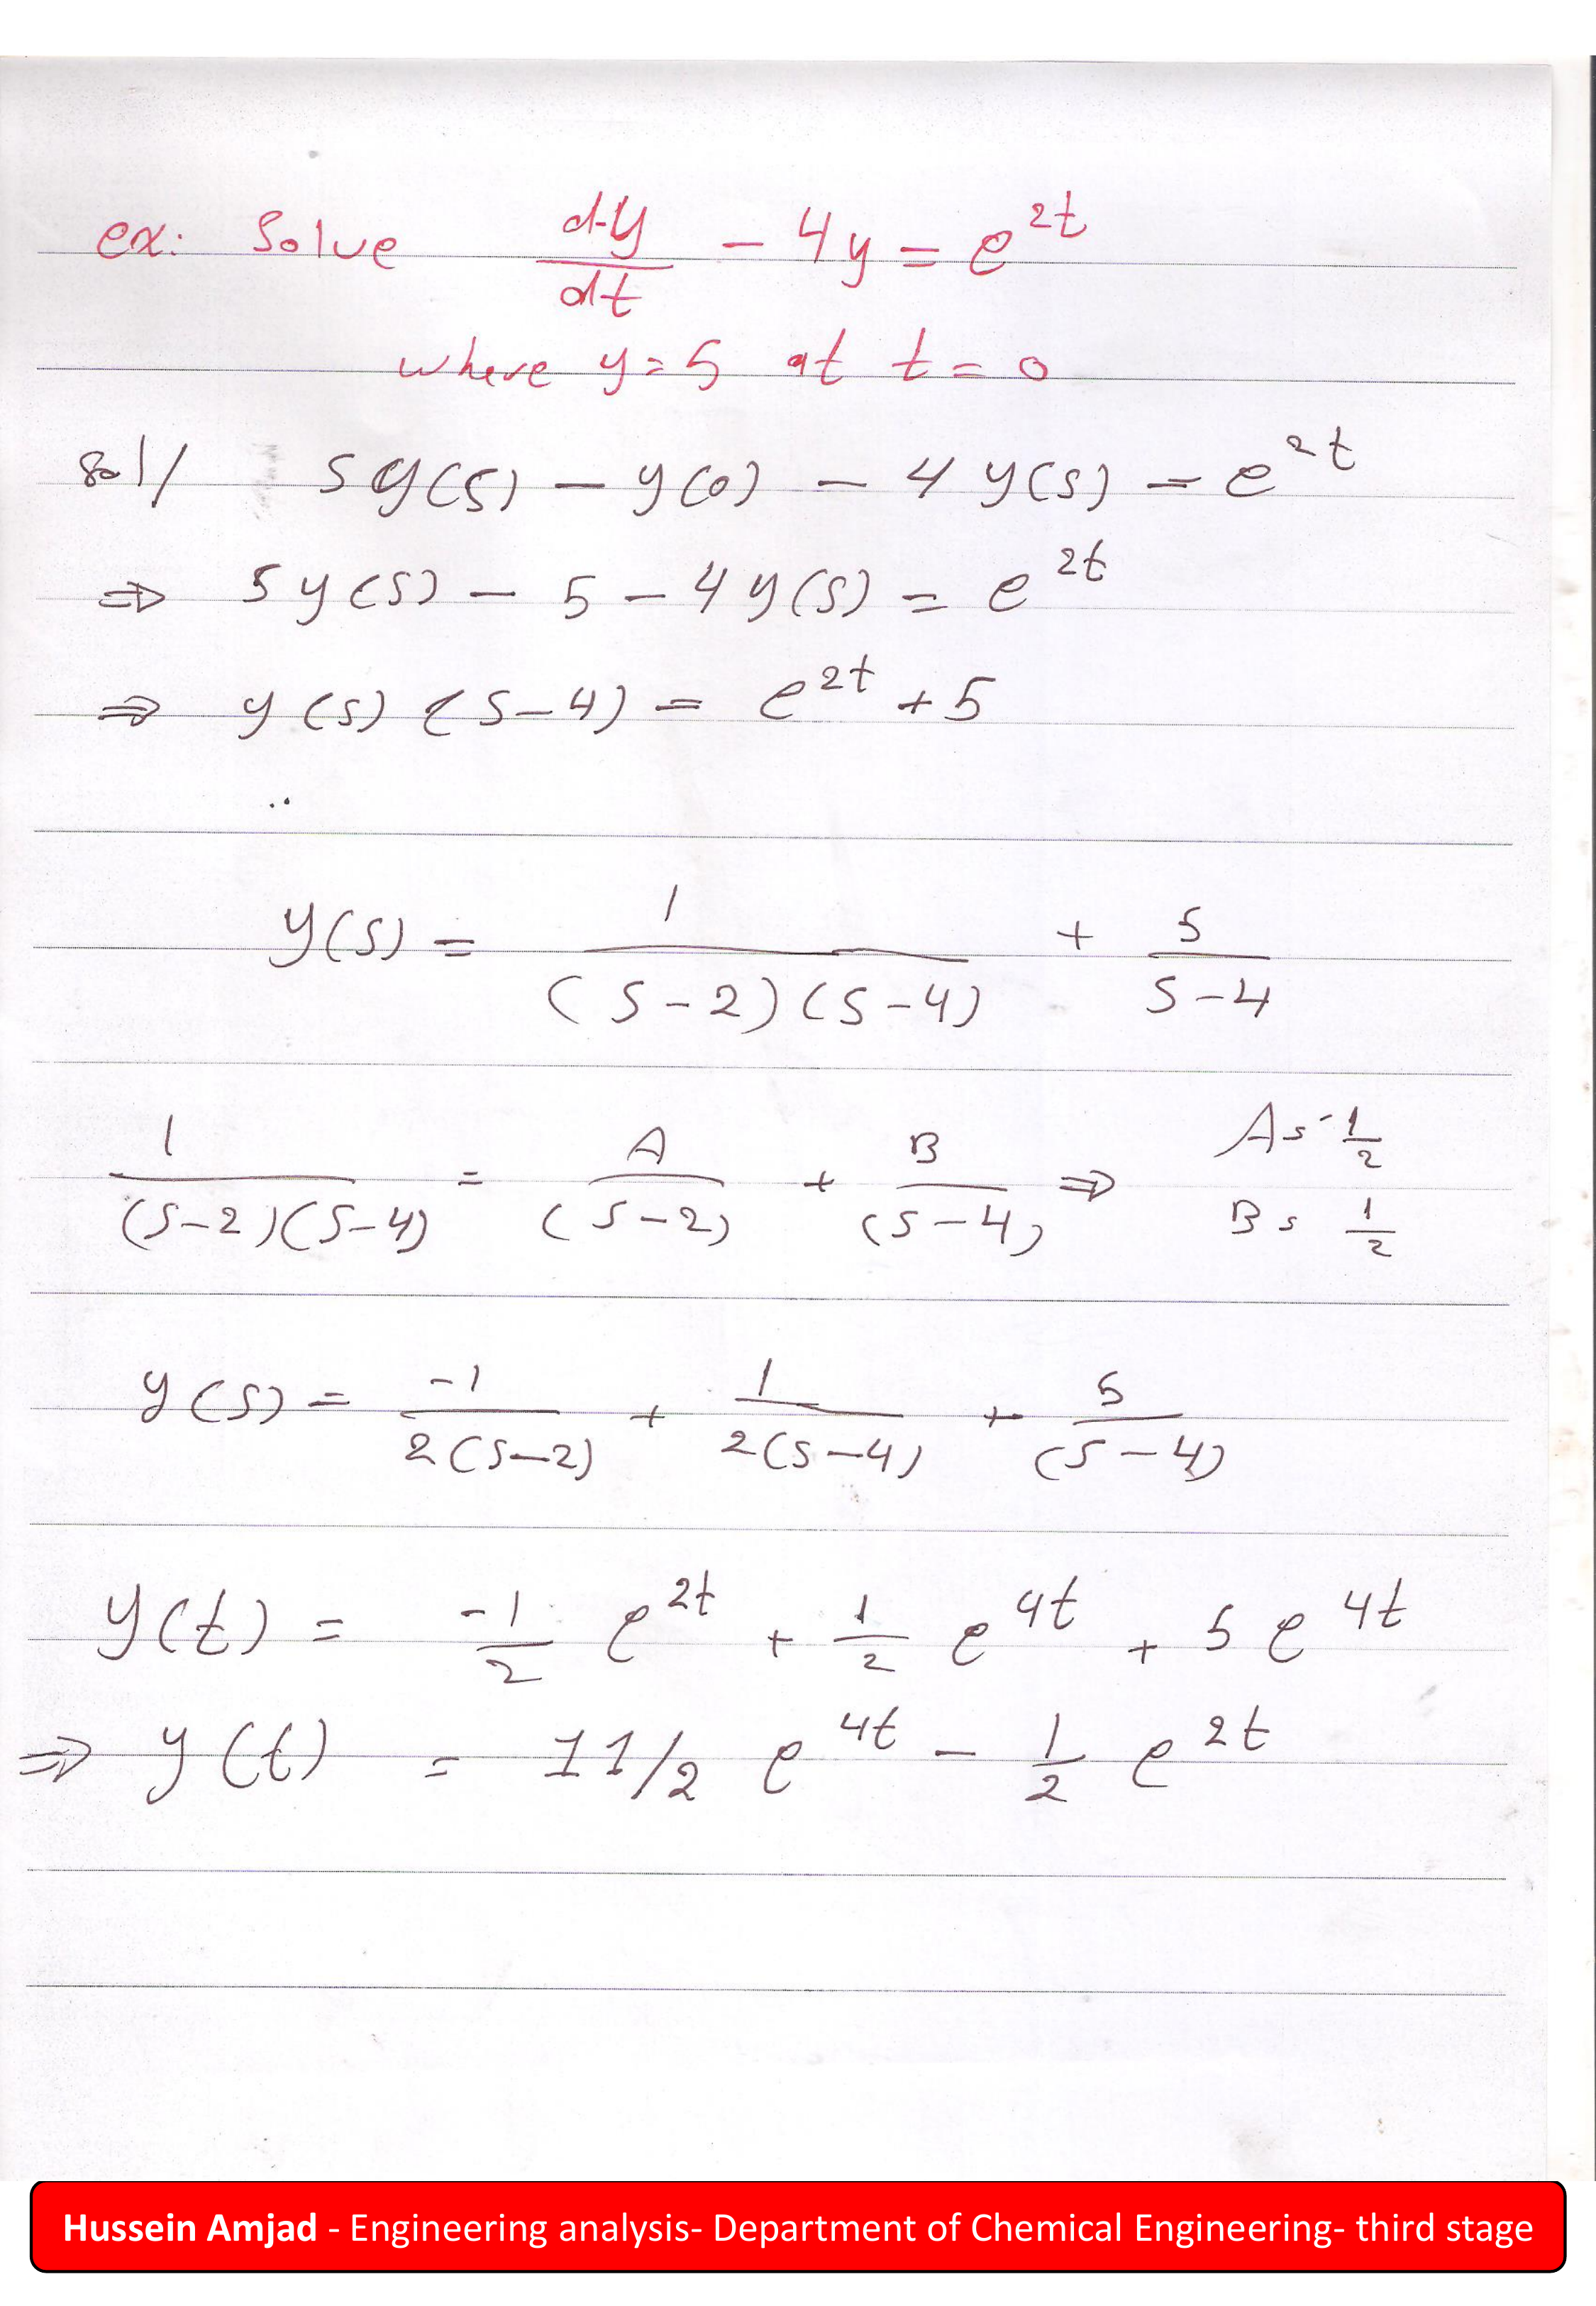 ex: Solve dy/dt - 4y = e^2t
where y=5 at t=0
sol/ sy(s) - y(0) - 4y(s) = e^2t
⇒ sy(s) - 5 - 4y(s) = e^2t
⇒ y(s) (s-4) = e^2t + 5
y(s) = 1/((s-2)(s-4)) + 5/(s-4)
1/((s-2)(s-4)) = A/(s-2) + B/(s-4) ⇒ A = -1/2
B = 1/2
y(s) = -1/(2(s-2)) + 1/(2(s-4)) + 5/(s-4)
y(t) = -1/2 e^2t + 1/2 e^4t + 5 e^4t
⇒ y(t) = 11/2 e^4t - 1/2 e^2t
Hussein Amjad - Engineering analysis- Department of Chemical Engineering- third stage